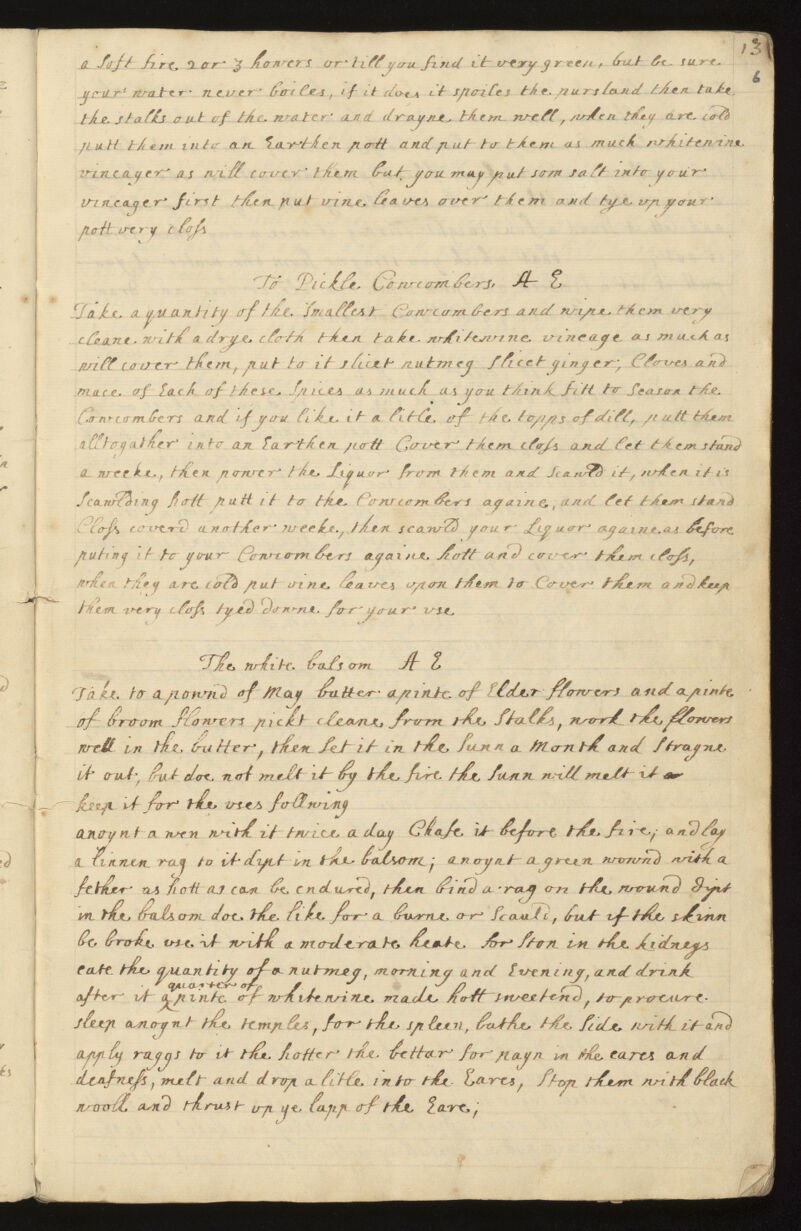 13
6
a soft fire 2 or 3 howers or till you find it very green, but be sure
your water never boiles, if it does it spoiles the pursland then take
the stalks out of the water and drayne them well, when they are cold
putt them into an Earthen pott and put to them as much whitewine
vineager as will cover them but you may put som salt into your
vineager first then put vine leaves over them and tye up your
pott very closs
To Pickle Cowcombers A E
Take a quantity of the smallest Cowcombers and wipe them very
cleane with a drye cloth then take whitewine vineage as much as
will cover them, put to it slicet nutmeg slicet ginger, Cloves and
mace of Each of these Spices as much as you think fitt to Season the
Cowcombers and if you like it a litle of the topps of dill, putt them
alltogather into an Earthen pott Cover them closs and let them stand
a weeke, then power the Liquor from them and Scawld it, when it is
Scawlding hott putt it to the Cowcombers againe, and let them stand
Closs coverd another weeke, then scawld your Liquor againe as before
puting it to your Cowcombers againe hott and cover them closs,
when they are cold put vine leaves upon them to Cover them and keep
them very closs tyed downe for your use
The white balsom A E
Take to a pownd of May butter a pinte of Elder flowers and a pinte
of broom flowers pickt cleane from the Stalks, work the flowers
well in the butter, then Set it in the Sunn a Month and Strayne
it out, but doe not melt it by the fire the Sunn will melt it
keep it for the uses follwing
anoynt a wen with it twice a day Chafe it before the fire, and lay
a linnen rag to it dipt in the balsom; anoynt a green wownd with a
fether as hott as can be endured, then bind a rag on the wound dipt
in the balsom doe the like for a burne or Scauld, but if the skinn
be broke use it with a moderate heate for Ston in the kidneys
eate the quantity of a nutmeg, morning and Evening, and drink
quarter of
after it a pinte of whitewine made hott sweetend, to procure
sleep anoynt the temples, for the spleen, bathe the Side with it and
apply raggs to it the hotter the bettar for payn in the eares and
deafness, melt and drop a litle into the Eares, Stop them with black
wooll and thrust up ye lapp of the Eare;